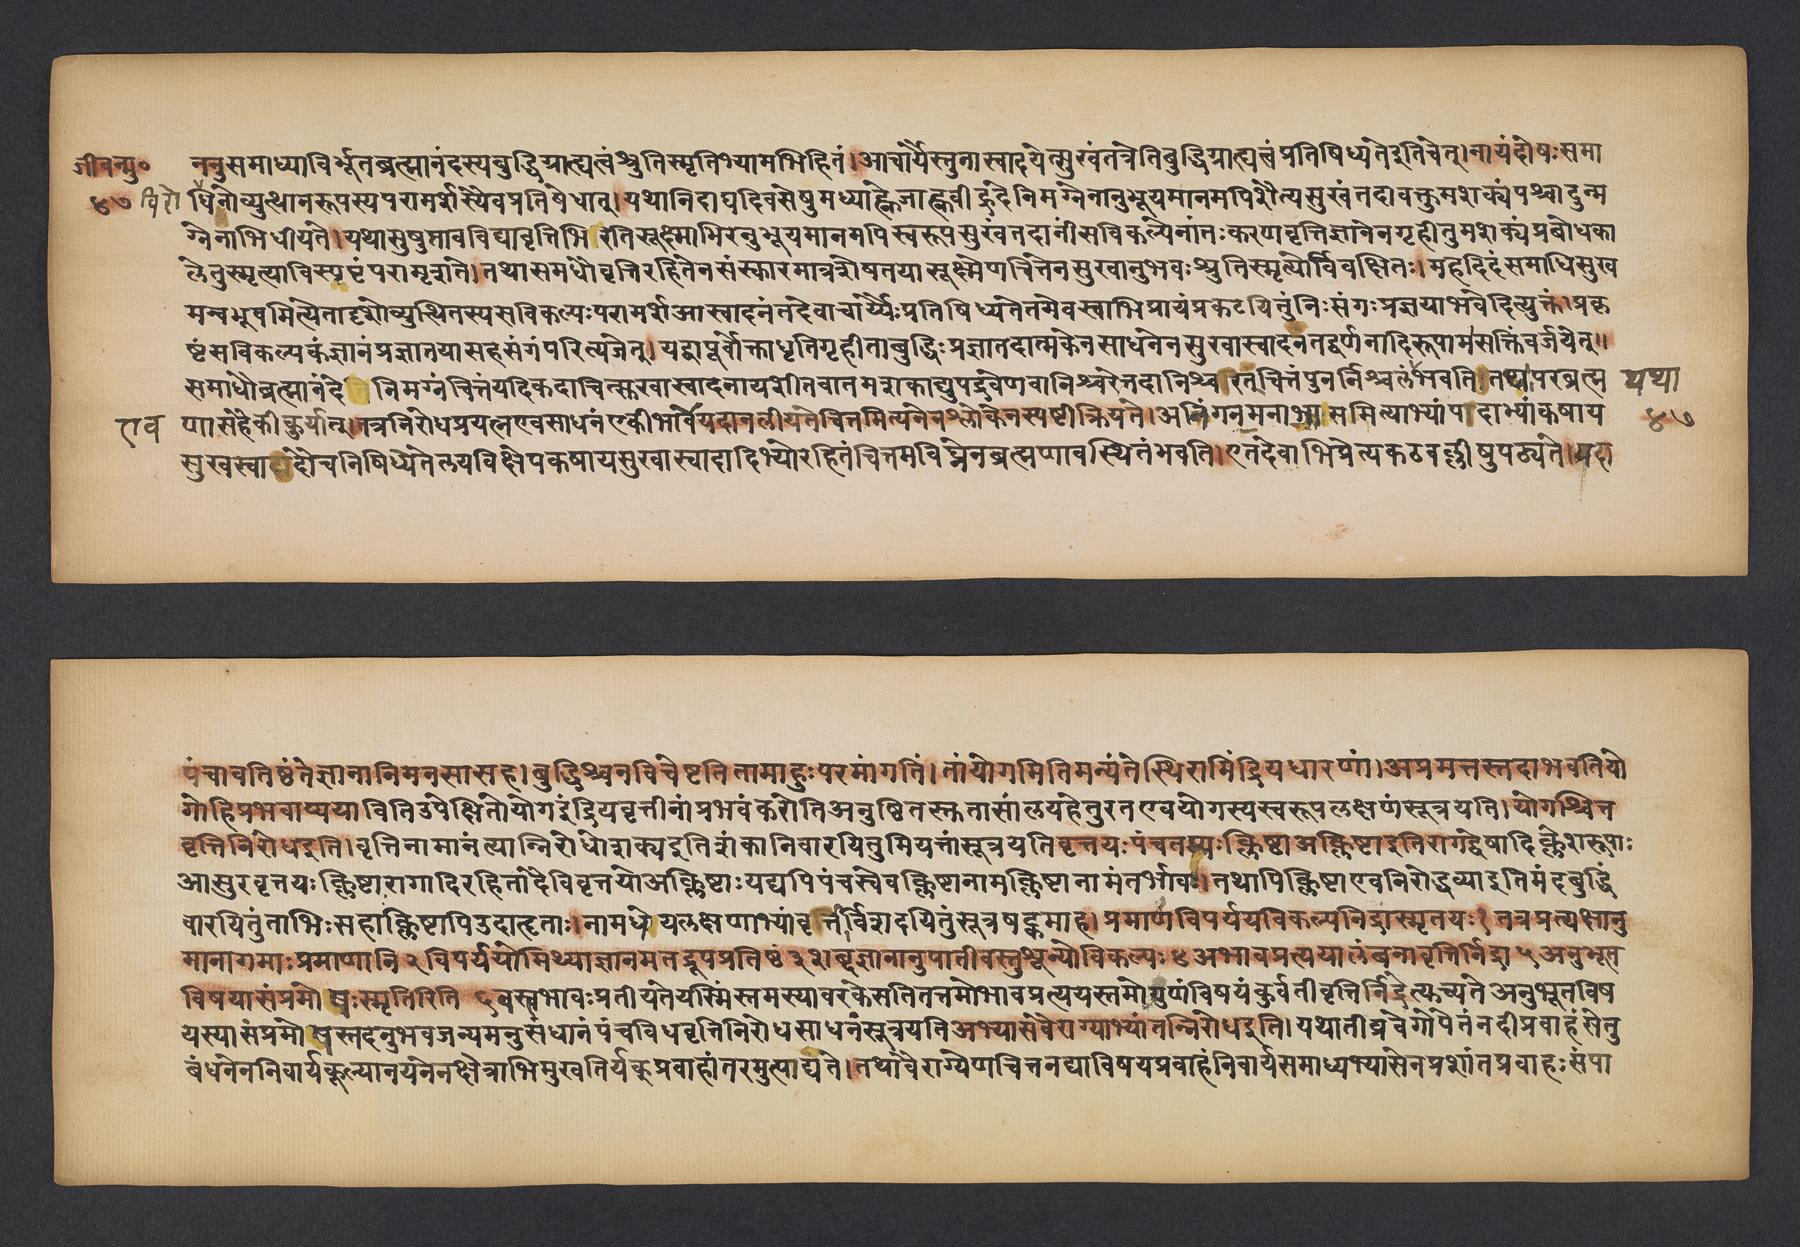 जीवन्मु०
४७
ननुसमाध्याविर्भूतब्रह्मानंदस्यबुद्धिग्राह्यत्वंश्रुतिस्मृतिभ्यामभिहितं।आचार्यैस्तुनास्वादयेत्सुखंतत्रेतिबुद्धिग्राह्यत्वंप्रतिषिध्यतेइतिचेत्।नायंदोषःसमा
धिनोव्युत्थानरूपस्यपरामर्शस्यैवप्रतिषेधात्।यथानिदाघदिवसेषुमध्याह्नेजाह्नवीह्रदेनिमग्नेनानुभूयमानमपिशैत्यसुखंतदावक्तुमशक्यंपश्चादुन्म
ग्नेनाभिधीयते।यथासुषुप्तावविद्यावृत्तिभिरतिसूक्ष्माभिरनुभूयमानमपिस्वरूपसुखंतदानींसविकल्पेनांतःकरणवृत्तिज्ञानेनगृहीतुमशक्यंप्रबोधका
लेतुस्मृत्याविस्पष्टंपरामृशते।तथासमधौवृत्तिरहितेनसंस्कारमात्रशेषतयासूक्ष्मेणचित्तेनसुखानुभवःश्रुतिस्मृत्योर्विवक्षितः।महदिदंसमाधिसुख
मन्वभूवमित्येतादृशोव्युत्थितस्यसविकल्पःपरामर्शआस्वादनंतदेवाचार्य्यैःप्रतिषिध्यतेतमेवस्वाभिप्रायंप्रकटयितुंनिःसंगःप्रज्ञयाभवेदित्युक्तं।प्रकृ
ष्टंसविकल्पकंज्ञानंप्रज्ञातयासहसंगंपरित्यजेत्।यद्वापूर्वोक्ताधृतिगृहीताबुद्धिःप्रज्ञातदात्मकेनसाधनेनसुखास्वादनतद्वर्णनादिरूपामसक्तिंवर्जयेत्॥
समाधौब्रह्मानंदेनिमग्नंचित्तंयदिकदाचित्सुखास्वादनायशीतवातमशकाद्युपद्रवेणवानिश्चरेत्तदानिश्चरतंचित्तंपुनर्निश्चलंभवति।तथापरब्रह्म यथा
एव णासहैकीकुर्यात्।तत्रनिरोधप्रयत्नएवसाधनंएकीभावेयदानलीयतेचित्तमित्यनेनश्लोकेनस्पष्टीक्रियते।अनिंगनमनाभासमित्याभ्यांपदाभ्यांकषाय ४७
सुखस्वादौचनिषिध्येतेलयविक्षेपकषायसुखास्वादादिभ्योरहितंचित्तमविघ्नेनब्रह्मणावस्थितंभवति।एतदेवाभिप्रेत्यकठवल्लीषुपठ्यते।यदा
पंचावतिष्ठंतेज्ञानानिमनसासह।बुद्धिश्चनविचेष्टतितामाहुःपरमांगतिं।तांयोगमितिमन्यंतेस्थिरामिंद्रियधारणां।अप्रमत्तस्तदाभवतियो
गोहिप्रभवाप्ययावितिउपेक्षितोयोगइंद्रियवृत्तीनांप्रभवंकरोतिअनुष्ठितस्तुतासांलयहेतुरतएवयोगस्यस्वरूपलक्षणंसूत्रयति।योगश्चित्त
वृत्तिनिरोधइति।वृत्तिनामानंत्यान्निरोधोशक्यइतिशंकांनिवारयितुमियत्तांसूत्रयतिवृत्तयःपंचतय्यःक्लिष्टाअक्लिष्टाइतिरागद्वेषादिक्लेशरूपाः
आसुरवृत्तयःक्लिष्टारागादिरहितादैविवृत्तयोअक्लिष्टाःयद्यपिपंचस्वेवक्लिष्टानामक्लिष्टानामंतर्भावः।तथापिक्लिष्टाएवनिरोद्धव्याइतिमंदबुद्धिं
वारयितुंताभिःसहाक्लिष्टापिउदाहृताः।नामधेयलक्षणाभ्यांवृत्तिर्विशदयितुंसूत्रषट्कमाह।प्रमाणविपर्ययविकल्पनिद्रास्मृतयः१तत्रप्रत्यक्षानु
मानागमाःप्रमाणानि२विपर्ययोमिथ्याज्ञानमतद्रूपप्रतिष्ठं३शब्दज्ञानानुपातीवस्तुशून्योविकल्पः४अभावप्रत्ययालंबनावृत्तिर्निद्रा५अनुभूत
विषयासंप्रमोषःस्मृतिरिति६वस्त्वभावःप्रतीयतेयस्मिंस्तमस्यावरकेसतितत्तमोभावप्रत्ययस्तमोगुणंविषयंकुर्वतीवृत्तिर्निद्रेत्युच्यतेअनुभूतविष
यस्यासंप्रमोषस्तदनुभवजन्यमनुसंधानंपंचविधवृत्तिनिरोधसाधनंसूत्रयतिअभ्यासवैराग्याभ्यांतन्निरोधइति।यथातीव्रवेगोपेतंनदीप्रवाहंसेतु
बंधनेननिवार्यकुल्यानयनेनक्षेत्राभिमुखतिर्यक्प्रवाहांतरमुत्पाद्यते।तथावैराग्येणचित्तनद्याविषयप्रवाहंनिवार्यसमाध्यभ्यासेनप्रशांतप्रवाहःसंपा